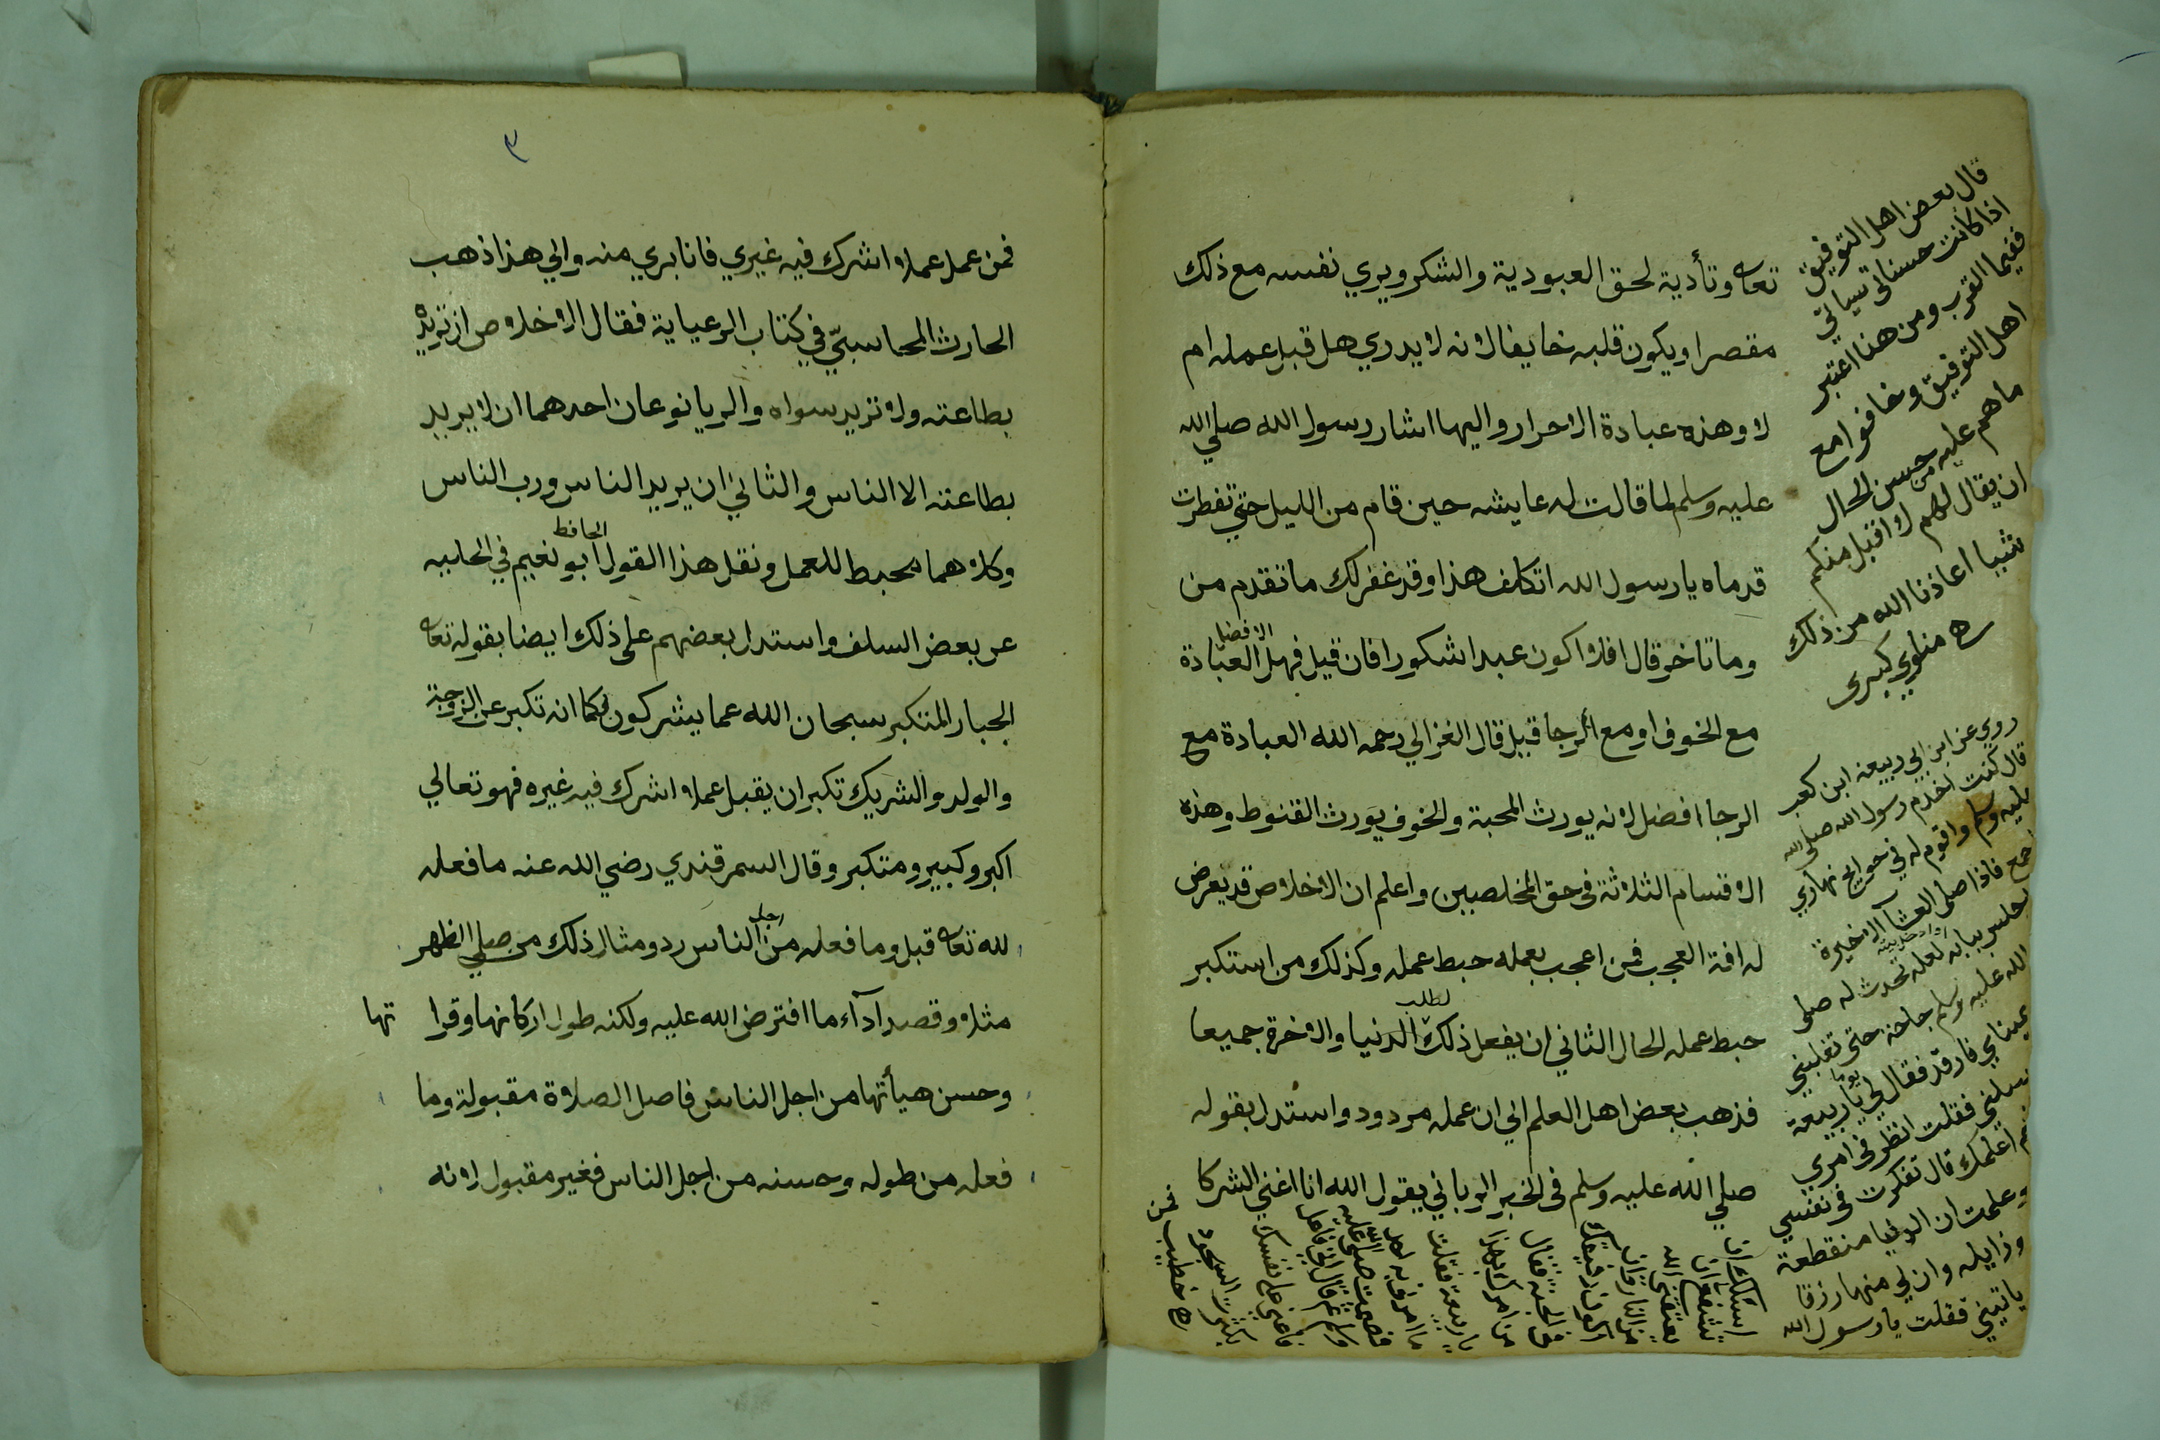 تعالى وتأدية لحق العبودية والشكر ويري نفسه مع ذلك
مقصرا ويكون قلبه خايفا لانه لا يدري هل قبل عمله ام
لا وهذه عبادة الاحرار واليها اشار رسول الله صلي الله
عليه وسلم لما قالت له عايشه حين قام من الليل حتي تفطرت
قدماه يا رسول الله اتكلف هذا وقد غفر لك ما تقدم من
وما تاخر قال افلا اكون عبدا شكورا فان قيل فهل الافضل العبادة
مع الخوف او مع الرجا قيل قال الغزالي رحمه الله العبادة مع
الرجا افضل لانه يورث المحبة والخوف يورث القنوط وهذه
الاقسام الثلاثة في حق المخلصين واعلم ان الاخلاص قد يعرض
له افة العجب فمن اعجب بعمله حبط عمله وكذلك من استكبر
حبط عمله الحال الثاني ان يفعل ذلك لطلب الدنيا والاخرة جميعا
فذهب بعض اهل العلم الي ان عمله مردود واستدل بقوله
صلي الله عليه وسلم في الخبر الرباني يقول الله انا اغني الشركا
فمن
قال بعض اهل التوفيق
اذا كانت حسناتي سياتي
فبما القرب ومن هنا اعتبر
اهل التوفيق وخافوا مع
ما هم عليه من حسن الحال
ان يقال لهم لا اقبل منكم
شيا اعاذنا الله من ذلك
اه مناوي كبرى
روي عن ابن ابي ربيعة ابن كعب
قال كنت اخدم رسول الله صلى الله
عليه وسلم واقوم له في حوايج نهاري
اجمع فاذا صلى العشآ الاخيرة
اجلس ببابه اذا دخل بيته لعله تحدث له صلى
الله عليه وسلم حاجة حتى تغلبني
عيناي فارقد فقال لي يوما يا ربيعة
سلني فقلت انظر في امري
ثم اعلمك قال تفكرت في نفسي
وعلمت ان الدنيا منقطعة
وزايله وان لي منها رزقا
ياتيني فقلت يا رسول الله
اسئلك ان
تشفع ان
يعتقني الله
من النار وان
اكون رفيقك
في الجنة فقال
من امرك بهذا
يا ربيعة فقلت
ما امرني به احد
فصمت صلى الله عليه
وسلم ثم قال اني فاعل
فاعني على نفسك
بكثرت السجود
اه خطيب
٣
فمن عمل عملا اشرك فيه غيري فانا بري منه والي هذا ذهب
الحارث المحاسبيّ في كتاب الرعياية فقال الاخلاص ان تريده
بطاعته ولا تريد سواه والريا نوعان احدهما ان لا يريد
بطاعته الا الناس والثاني ان يريد الناس ورب الناس
وكلاهما محبط للعمل ونقل هذا القول الحافظ ابو نعيم في الحلييه
عن بعض السلف واستدل بعضهم علي ذلك ايضا بقوله تعالى
الجبار المتكبر سبحان الله عما يشركون فكما انه تكبر عن الزوجة
والولد والشريك تكبر ان يقبل عملا اشرك فيه غيره فهو تعالي
اكبر وكبير ومتكبر وقال السمرقندي رضي الله عنه ما فعله
لله تعالى قبل وما فعله من اجل الناس رد ومثال ذلك من صلي الظهر
مثلا وقصد آدآء ما افترض الله عليه ولكنه طول اركانها وقرا تها
وحسن هيأتها من اجل الناس فاصل الصلاة مقبولة وما
فعله من طوله وحسنه من اجل الناس فغير مقبول لانه